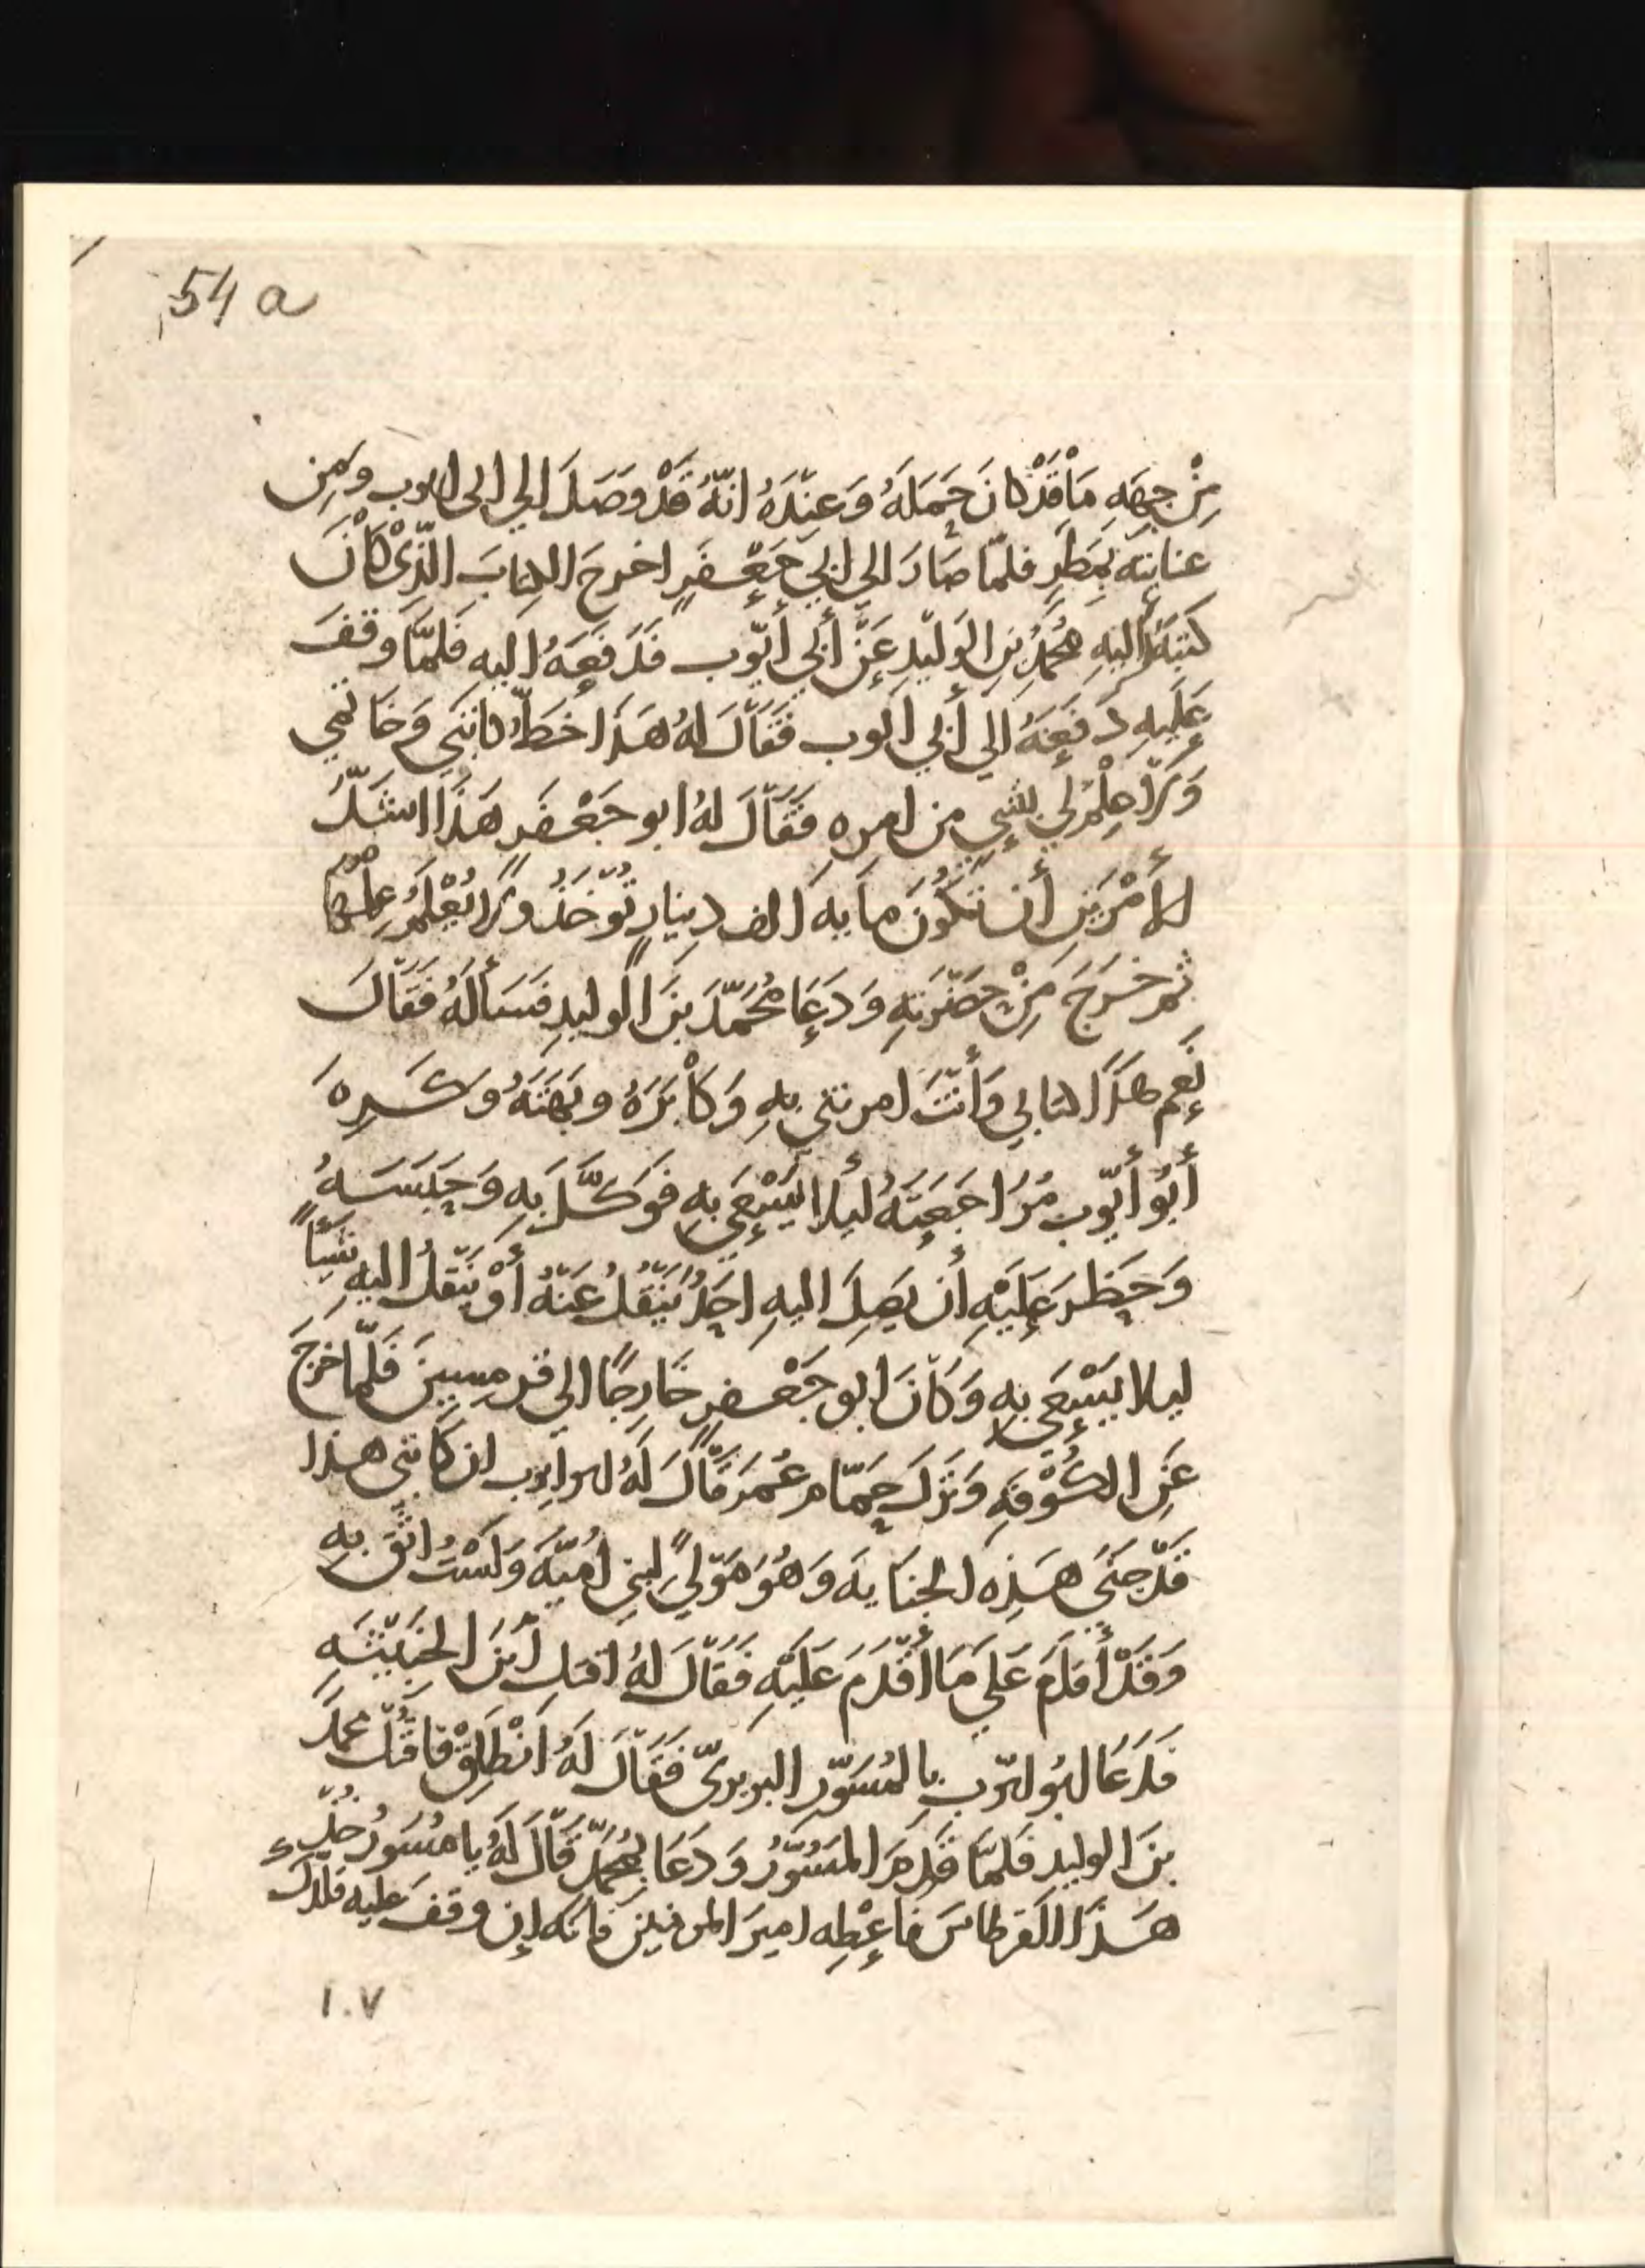 54 a
مِنْ جِهَهِ مَا قَدْ كانَ حَمَلَهُ وَعِنْدَهُ انّهُ قَدْ وصَلَ الي ابى ايوب ومِن
عنايتَه بمَطَرٍ فلمّا صَارَ الي ابي جَعْفَرٍ اخرجَ الكِتابَ الَّذِىْ كَانَ
كتبَهُ اليهِ مُحمدُ بن الوَليدِ عَنْ أبي أيّوب فدَفعَهُ اليه فَلمّا وقفَ
عَليهِ دَفعَهُ الي أبي ايوب فَقَالَ لهُ هَذَا خَطُّ كاتبَي وَخاتمي
وَلا عِلْمَ لي بشيءٍ من امره فَقَالَ لهُ ابو جَعْفَرٍ هَذَا اشَدُّ
الأمْرَينِ أن تَكُونَ مايه الف دينارٍ تُؤخَذُ ولا تُعْلَمُ عِلمَها
ثم خَرَجَ مِنْ حَضْرَتِهِ وَدَعَا مُحَمّدَ بنَ الوليدِ فسَألَهُ فَقَالَ
نَعم هذا كتابي وَأنْتَ امرتني بِهِ وَكَابَرَهُ وبَهَتَهُ وكَرِهَ
أبُو أيّوب مُرَاجَعَتَهُ ليلا يَسْعَى بِهِ فوَكَّلَ بهِ وَحَبَسَهُ
وَحَظرَ عَلَيْهِ أن يَصِلَ اليهِ احَدٌ يَنْقُلُ عَنْهُ أوْ يَنْقلُ اليهِ شَيأً
ليلا يَسْعَى بهِ وَكانَ ابو جَعْفرٍ خَارِجًا الي قرمِسِينَ فَلَمّا خرَجَ
عَنِ الكُوْفهِ وَنزَلَ حَمّام عُمَرَ قَالَ لَهُ ابو ايوب ان كَاتبَى هذا
قَدْ جَنَى هَذِهِ الجنَايه وَهُوَ مَوْليً لبني اُميّه وَلَسْتُ اثِقُ بِهِ
وَقَدْ أقدَمَ عَلي مَا أقْدَمَ عَلَيْهِ فَقَالَ لهُ اقتل ابْنَ الخَبيثَهِ
فدَعَا ابُو ايّوب بالمُسَوّرِ البربريّ فَقَالَ لَهُ انْطَلِقْ فاقتُل محمدَ
بنَ الوليدِ فلمّا قَدِمَ المسَوّرُ وَدَعَا بمُحَمّدٍ قَالَ لَهُ يا مُسَوّرُ خُذ
هَذَا القرطاسَ فاعْطِه اميرَ المومنين فانّه إن وقفَ عليه فلكَ
١٠٧